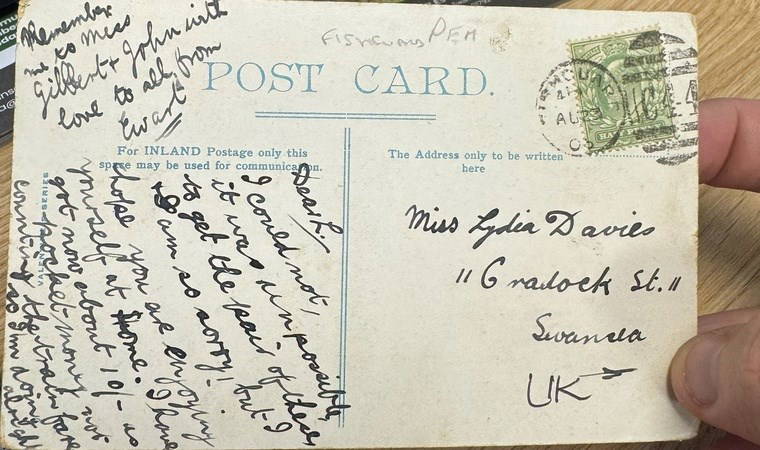 Remember
me to Miss
Gilbert + John with
love to all from
Ewart
FISHGUARD PEM
POST CARD.
For INLAND Postage only this
space may be used for communication.
The Address only to be written
here
Dear L,
I could not,
it was un possible,
to get the pair of these
& I am so sorry! but I
hope you are enjoying
yourself at Home. I have
got now about 10/- as
pocket money not
counting the train fare
so I'm doing
alright
SERIES
Miss Lydia Davies
"Cradock St."
Swansea
UK
AU